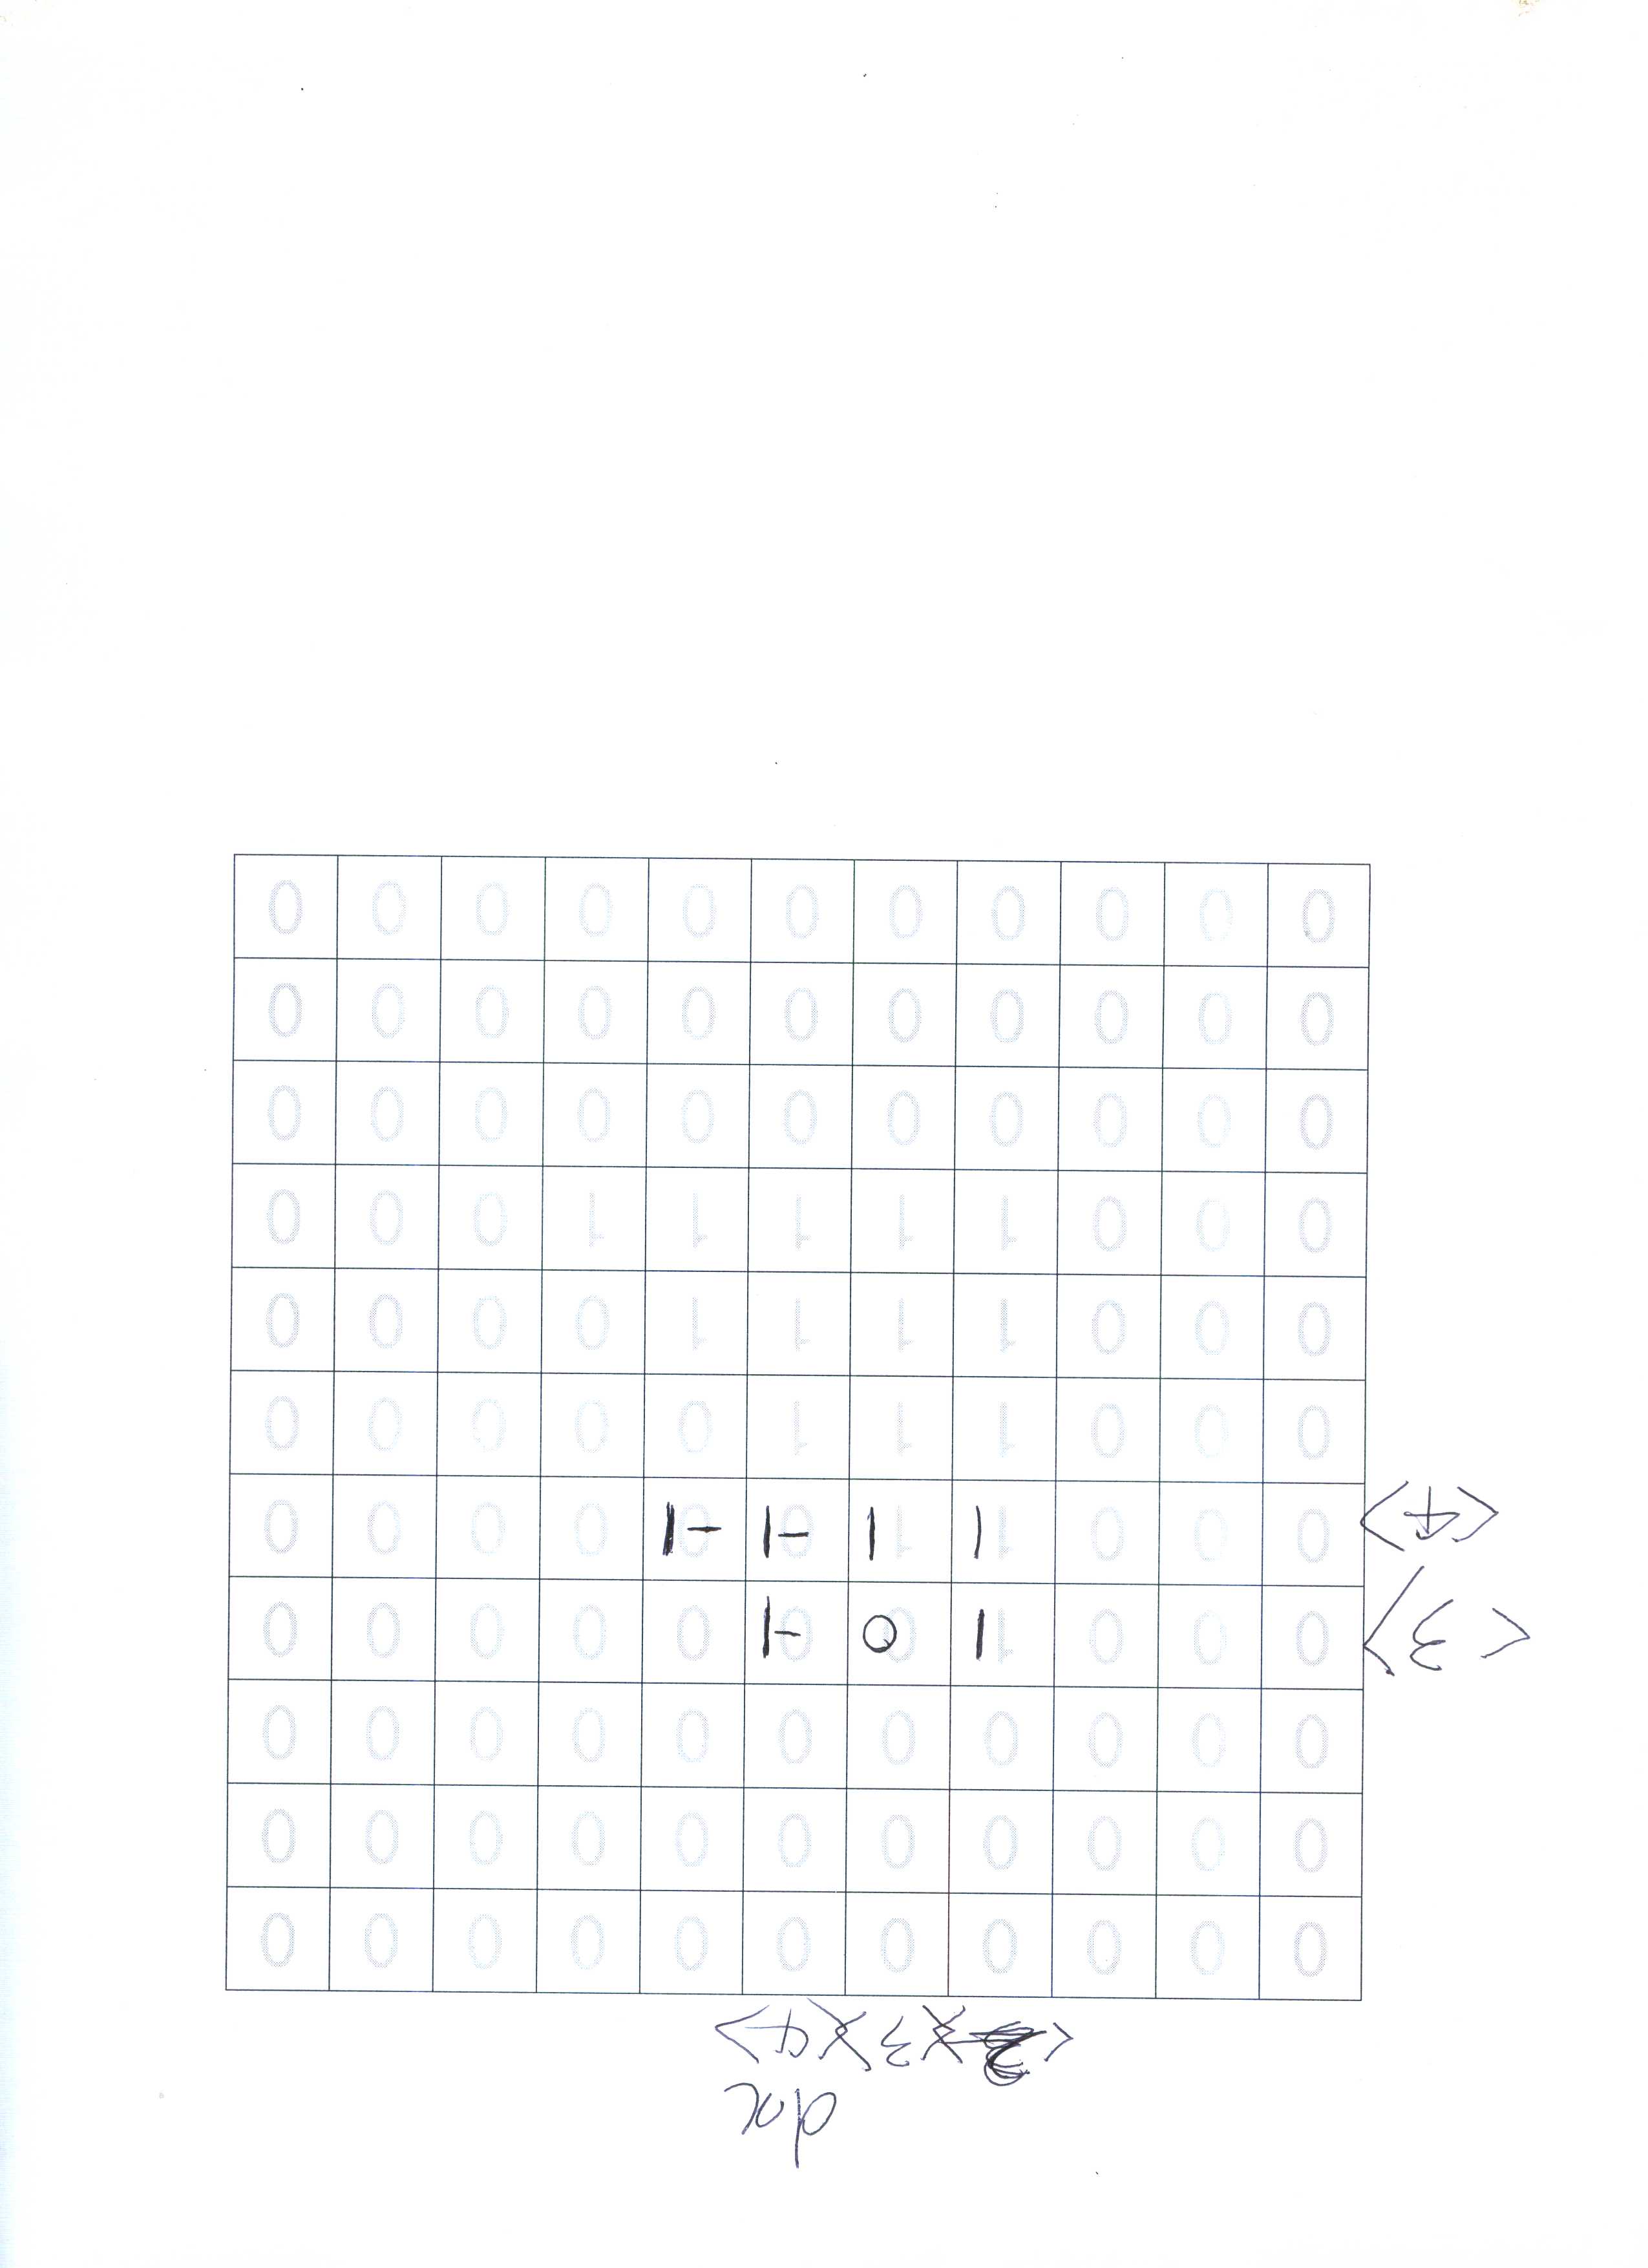 dx
<3><4>
0 0 0 0 0 0 0 0 0 0 0
0 0 0 0 0 0 0 0 0 0 0
0 0 0 0 0 0 0 0 0 0 0
<3> 0 0 0 1 1 0 0 0 -1 0 0 0 0 0
<4> 0 0 0 1 1 1 1 0 -1 0 -1 0 0 0 0
0 0 0 1 1 1 0 0 0 0 0
0 0 0 1 1 1 1 0 0 0 0
0 0 0 1 1 1 1 1 0 0 0
0 0 0 0 0 0 0 0 0 0 0
0 0 0 0 0 0 0 0 0 0 0
0 0 0 0 0 0 0 0 0 0 0